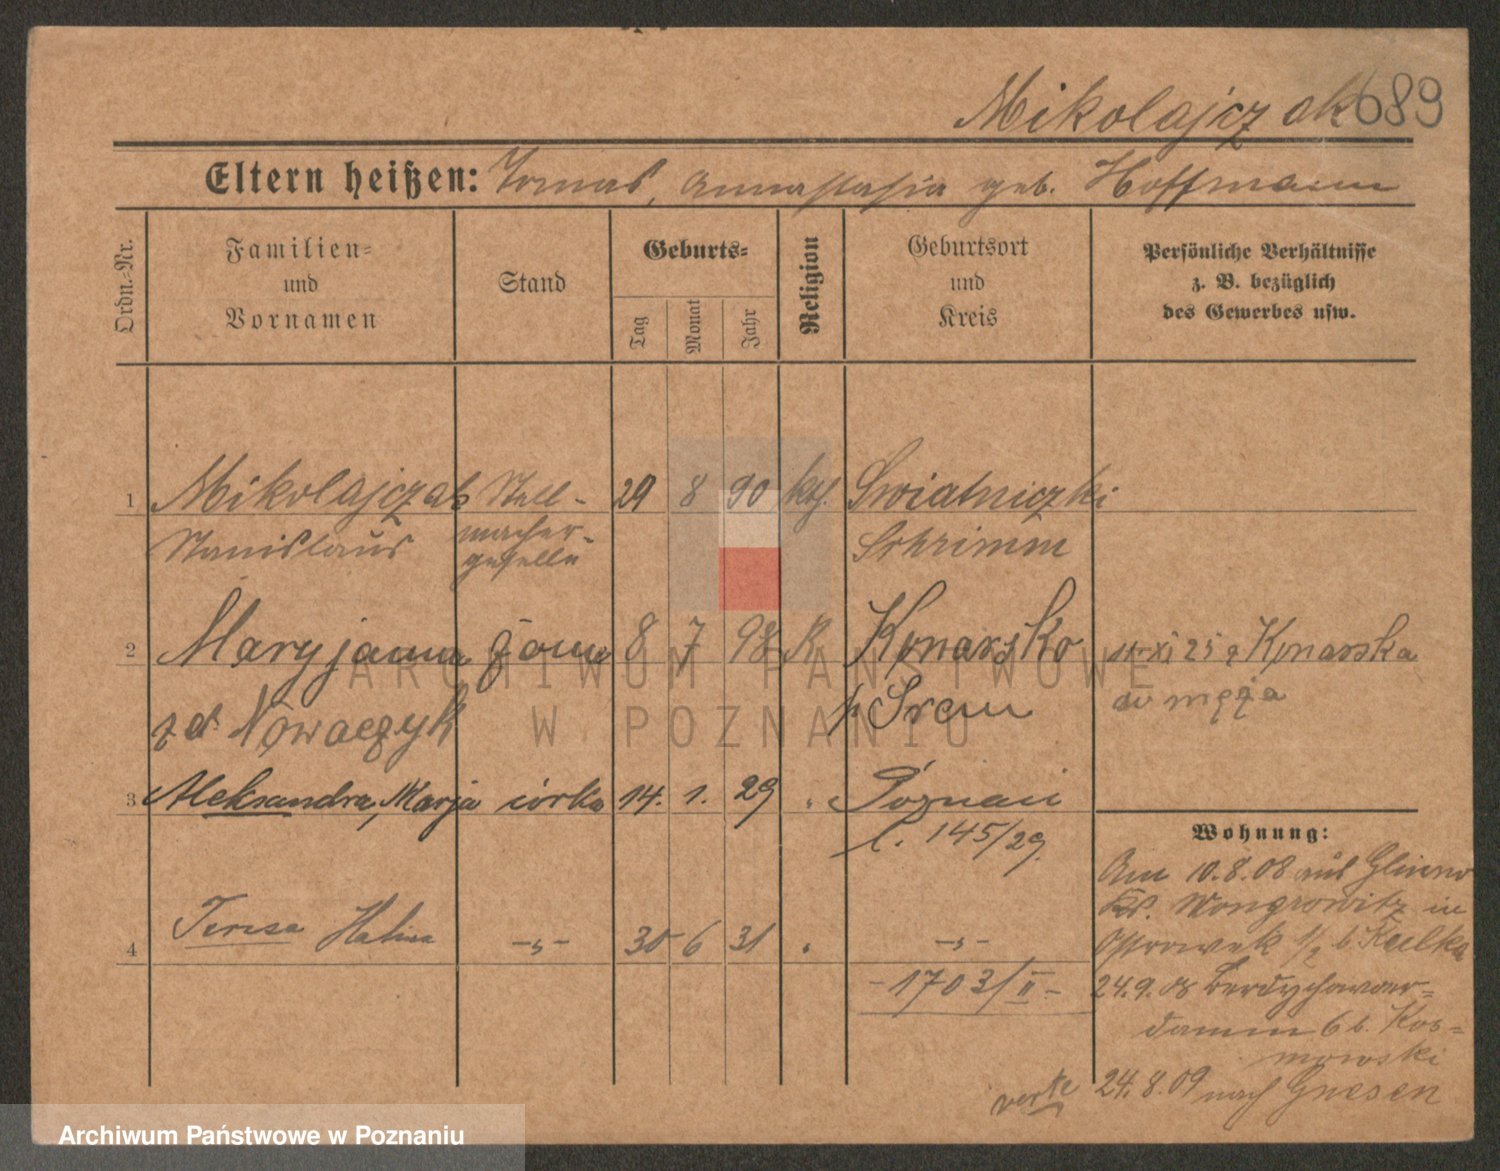 Mikolajczak 689
Eltern heißen: Tomas, Annastasia geb. Hoffmann
Ordn.-Nr.
Familien-
und
Vornamen
Stand
Geburts-
Tag
Monat
Jahr
Religion
Geburtsort
und
Kreis
Persönliche Verhältnisse
z. B. bezüglich
des Gewerbes usw.
1 Mikolajczak Stell- 29 8 90 kth. Swiatniczki
Stanislaus macher- Schrimm
geselle
2 Maryjanna żona 8 7 98 K Konarsko
zd Nowaczyk p. Śrem
XI 25 z Konarska
do męża
3 Aleksandra, Marja córka 14. 1. 29 " Poznań
l. 145/29.
4 Teresa Halina -„- 30 6 31 " -„-
-1703/II-
Wohnung:
Am 10.8.08 aus Glinno
Kr. Wongrowitz in
Ostrowek 1/2 b. Kulka
24.9.08 Berdychower-
damm 6 b. Kos-
mowski
24.8.09 nach Gnesen
ARCHIWUM PAŃSTWOWE
W POZNANIU
Archiwum Państwowe w Poznaniu